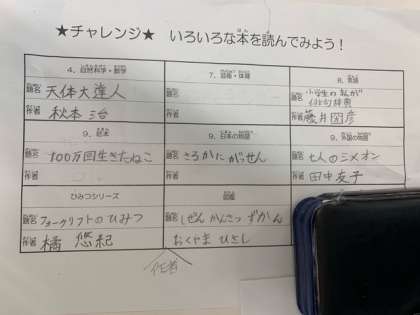 ★チャレンジ★ いろいろな本を読んでみよう！
4. 自然科学・数学
7. 芸術・体育
8. 言語
題名 天体大達人
題名
題名 小学生のまんが俳句辞典
作者 秋本 治
作者
作者 藤井圀彦
9. 絵本
9. 日本の物語
9. 外国の物語
題名 100万回生きたねこ
題名 さるかに がっせん
題名 七人のシメオン
作者
作者
作者 田中友子
ひみつシリーズ
図鑑
題名 フォークリフトのひみつ
題名 しぜん かんさつ ずかん
作者 橘 悠紀
おくやま ひさし
作者